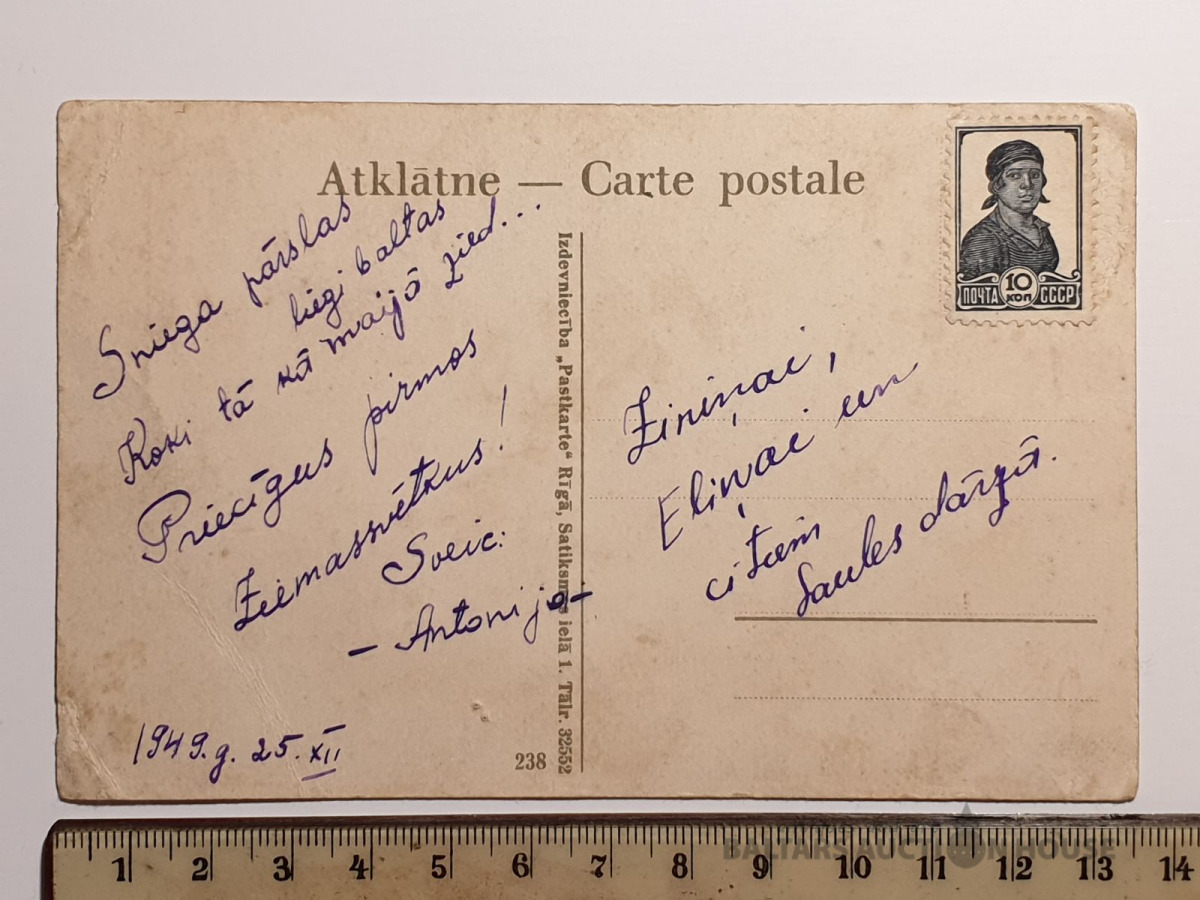 Atklātne — Carte postale
Sniega pārslas
liegi baltas
Koki tā kā maijā zied...
Priecīgus pirmos
Ziemassvētkus!
Sveic:
- Antonija -
1949.g. 25. XII
238
Izdevniecība „Pastkarte“ Rīgā, Satiksmes ielā 1. Tālr. 32552
10
КОП
ПОЧТА СССР
Ziniņai,
Eliņai un
citiem
Saules dārzā.
BALTARS AUCTION HOUSE
1 2 3 4 5 6 7 8 9 10 11 12 13 14